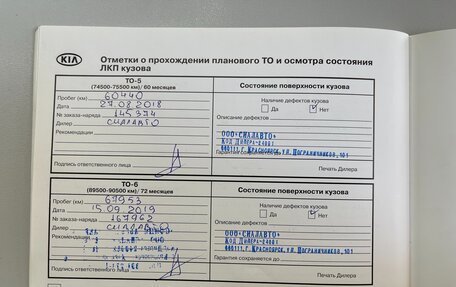 KIA
Отметки о прохождении планового ТО и осмотра состояния
ЛКП кузова
ТО-5
(74500-75500 км)/ 60 месяцев
Пробег (км) 60440
Дата 27.08.2018
№ заказа-наряда 145374
Дилер СИАЛАВТО
Рекомендации
Подпись ответственного лица
Состояние поверхности кузова
Наличие дефектов кузова
Да Нет
Описание дефектов
ООО«СИАЛАВТО»
КОД ДИЛЕРА-24001
660111,Г.КРАСНОЯРСК,УЛ.ПОГРАНИЧНИКОВ,101
Гарантия сохраняется до
Печать Дилера
ТО-6
(89500-90500 км)/ 72 месяцев
Пробег (км) 67953
Дата 15.09.2019
№ заказа-наряда 167962
Дилер СИАЛАВТО
Рекомендации
Подпись ответственного лица
Состояние поверхности кузова
Наличие дефектов кузова
Да Нет
Описание дефектов
ООО«СИАЛАВТО»
КОД ДИЛЕРА-24001
660111,Г.КРАСНОЯРСК,УЛ.ПОГРАНИЧНИКОВ,101
Гарантия сохраняется до
Печать Дилера